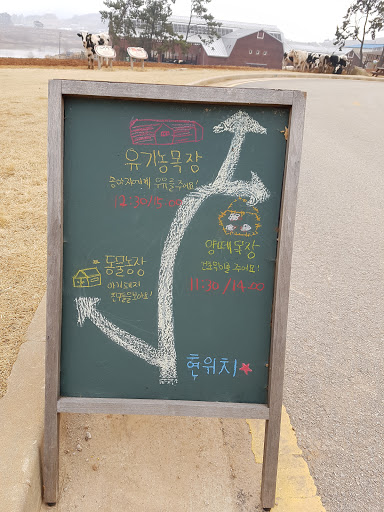 유기농목장
송아지에게 우유를 주어요!
12:30/15:00
양떼목장
건초먹이를 주어요!
11:30/14:00
동물농장
아기돼지
친구들을 보아요!
현위치